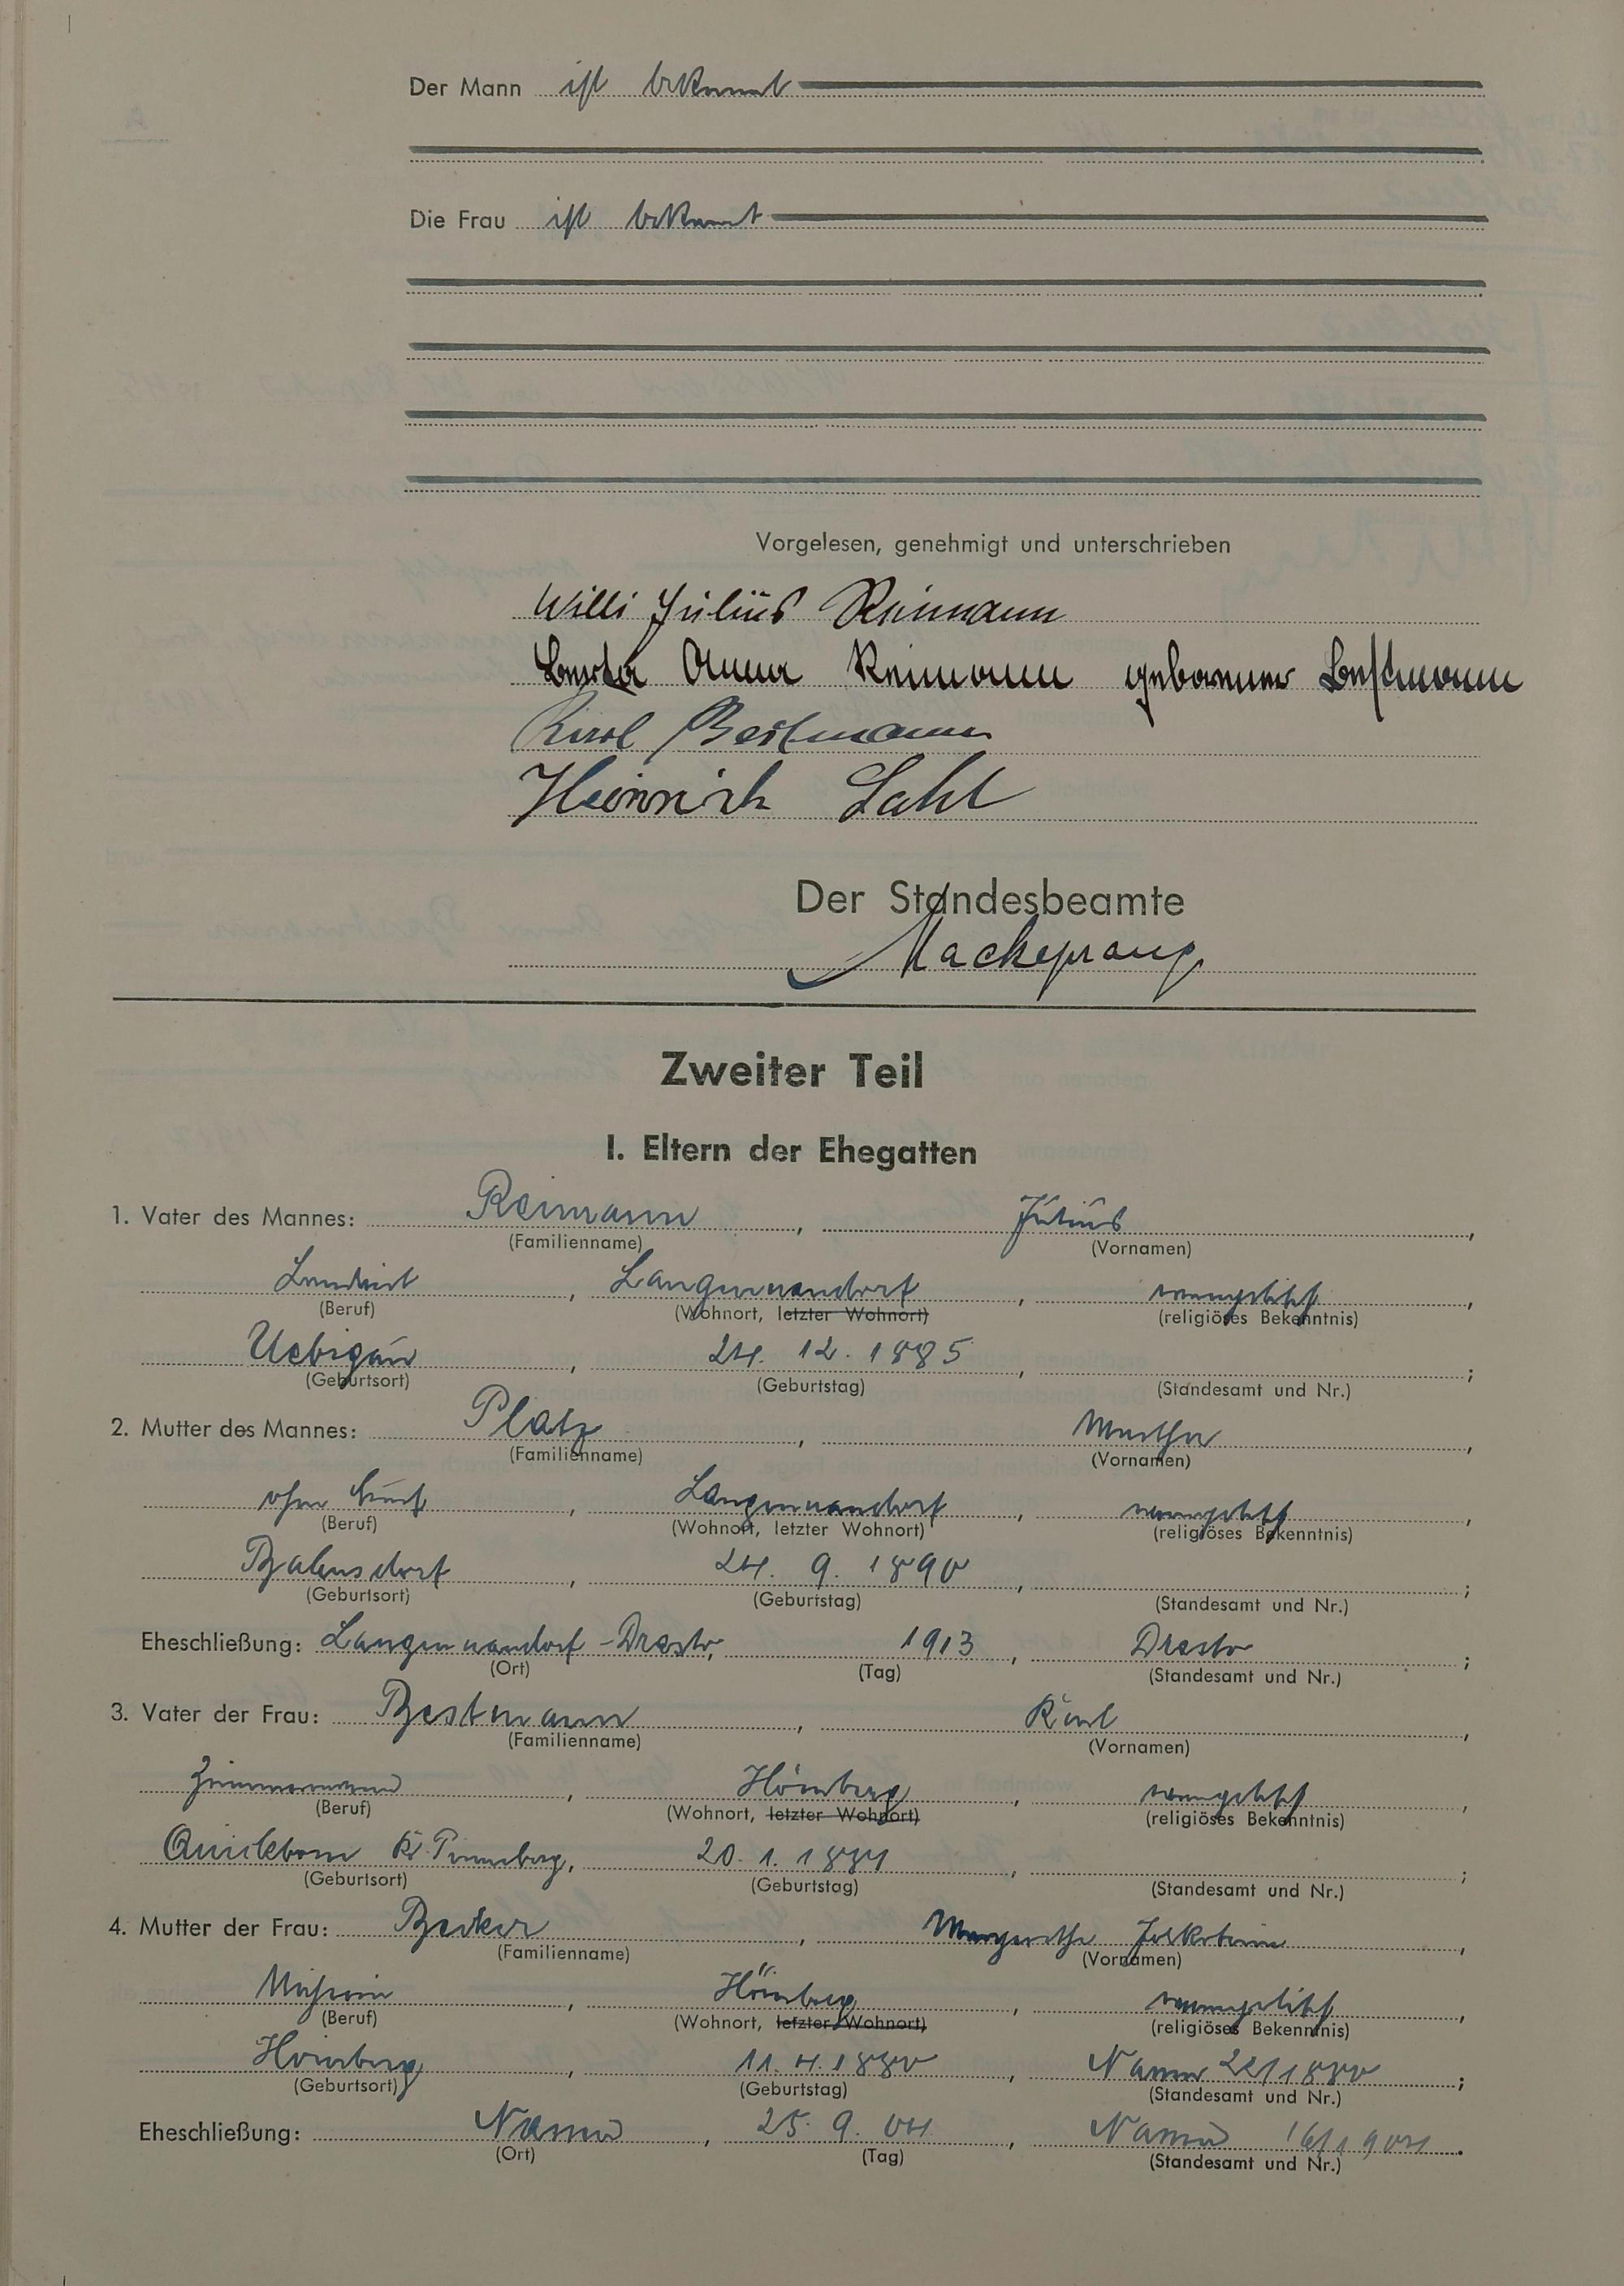 Der Mann ist bekannt
Die Frau ist bekannt
Vorgelesen, genehmigt und unterschrieben
Willi Julius Reimann
Berta Anna Reimann geborener Bestmann
Karl Bestmann
Heinrich Lahl
Der Standesbeamte
Mackeprang
Zweiter Teil
I. Eltern der Ehegatten
1. Vater des Mannes: Reimann, Julius,
(Familienname) (Vornamen)
Landwirt, Langennaundorf, evangelisch,
(Beruf) (Wohnort, letzter Wohnort) (religiöses Bekenntnis)
Uebigau, 24. 12. 1885, ;
(Geburtsort) (Geburtstag) (Standesamt und Nr.)
2. Mutter des Mannes: Platz, Martha,
(Familienname) (Vornamen)
ohne Beruf, Langennaundorf, evangelisch,
(Beruf) (Wohnort, letzter Wohnort) (religiöses Bekenntnis)
24. 9. 1890, ;
(Geburtsort) (Geburtstag) (Standesamt und Nr.)
Eheschließung: Langennaundorf - 1913, ;
(Ort) (Tag) (Standesamt und Nr.)
3. Vater der Frau: Bestmann, Karl,
(Familienname) (Vornamen)
Zimmermann, evangelisch,
(Beruf) (Wohnort, letzter Wohnort) (religiöses Bekenntnis)
Quickborn Kr. Pinneberg, 20. 1. 1884, ;
(Geburtsort) (Geburtstag) (Standesamt und Nr.)
4. Mutter der Frau: Becker, Margarethe,
(Familienname) (Vornamen)
evangelisch,
(Beruf) (Wohnort, letzter Wohnort) (religiöses Bekenntnis)
11. 4. 1880, ;
(Geburtsort) (Geburtstag) (Standesamt und Nr.)
Eheschließung: 25. 9. 04, .
(Ort) (Tag) (Standesamt und Nr.)